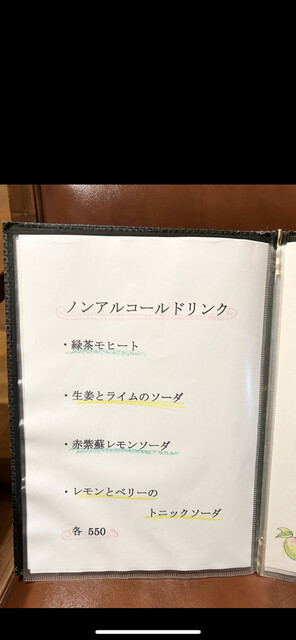 ノンアルコールドリンク
・緑茶モヒート
・生姜とライムのソーダ
・赤紫蘇レモンソーダ
・レモンとベリーの
トニックソーダ
各 550